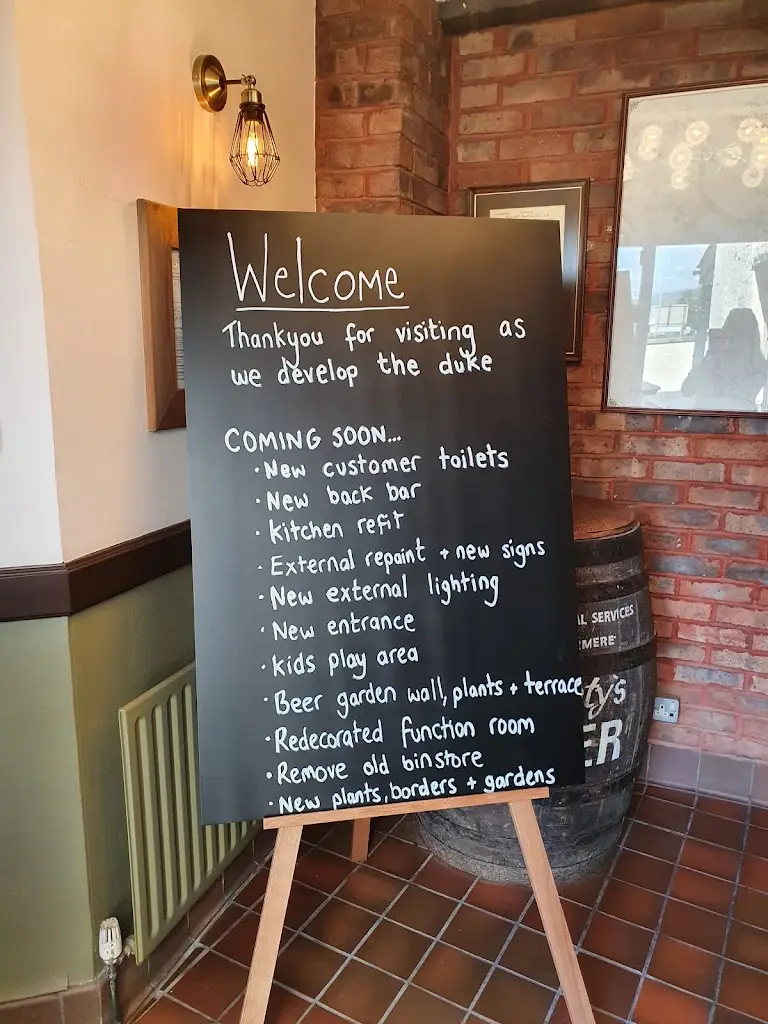 Welcome
Thankyou for visiting as
we develop the duke
COMING SOON...
· New customer toilets
· New back bar
· Kitchen refit
· External repaint + new signs
· New external lighting
· New entrance
· Kids play area
· Beer garden wall, plants + terrace
· Redecorated function room
· Remove old binstore
· New plants, borders + gardens
AL SERVICES
MERE
ty's
ER